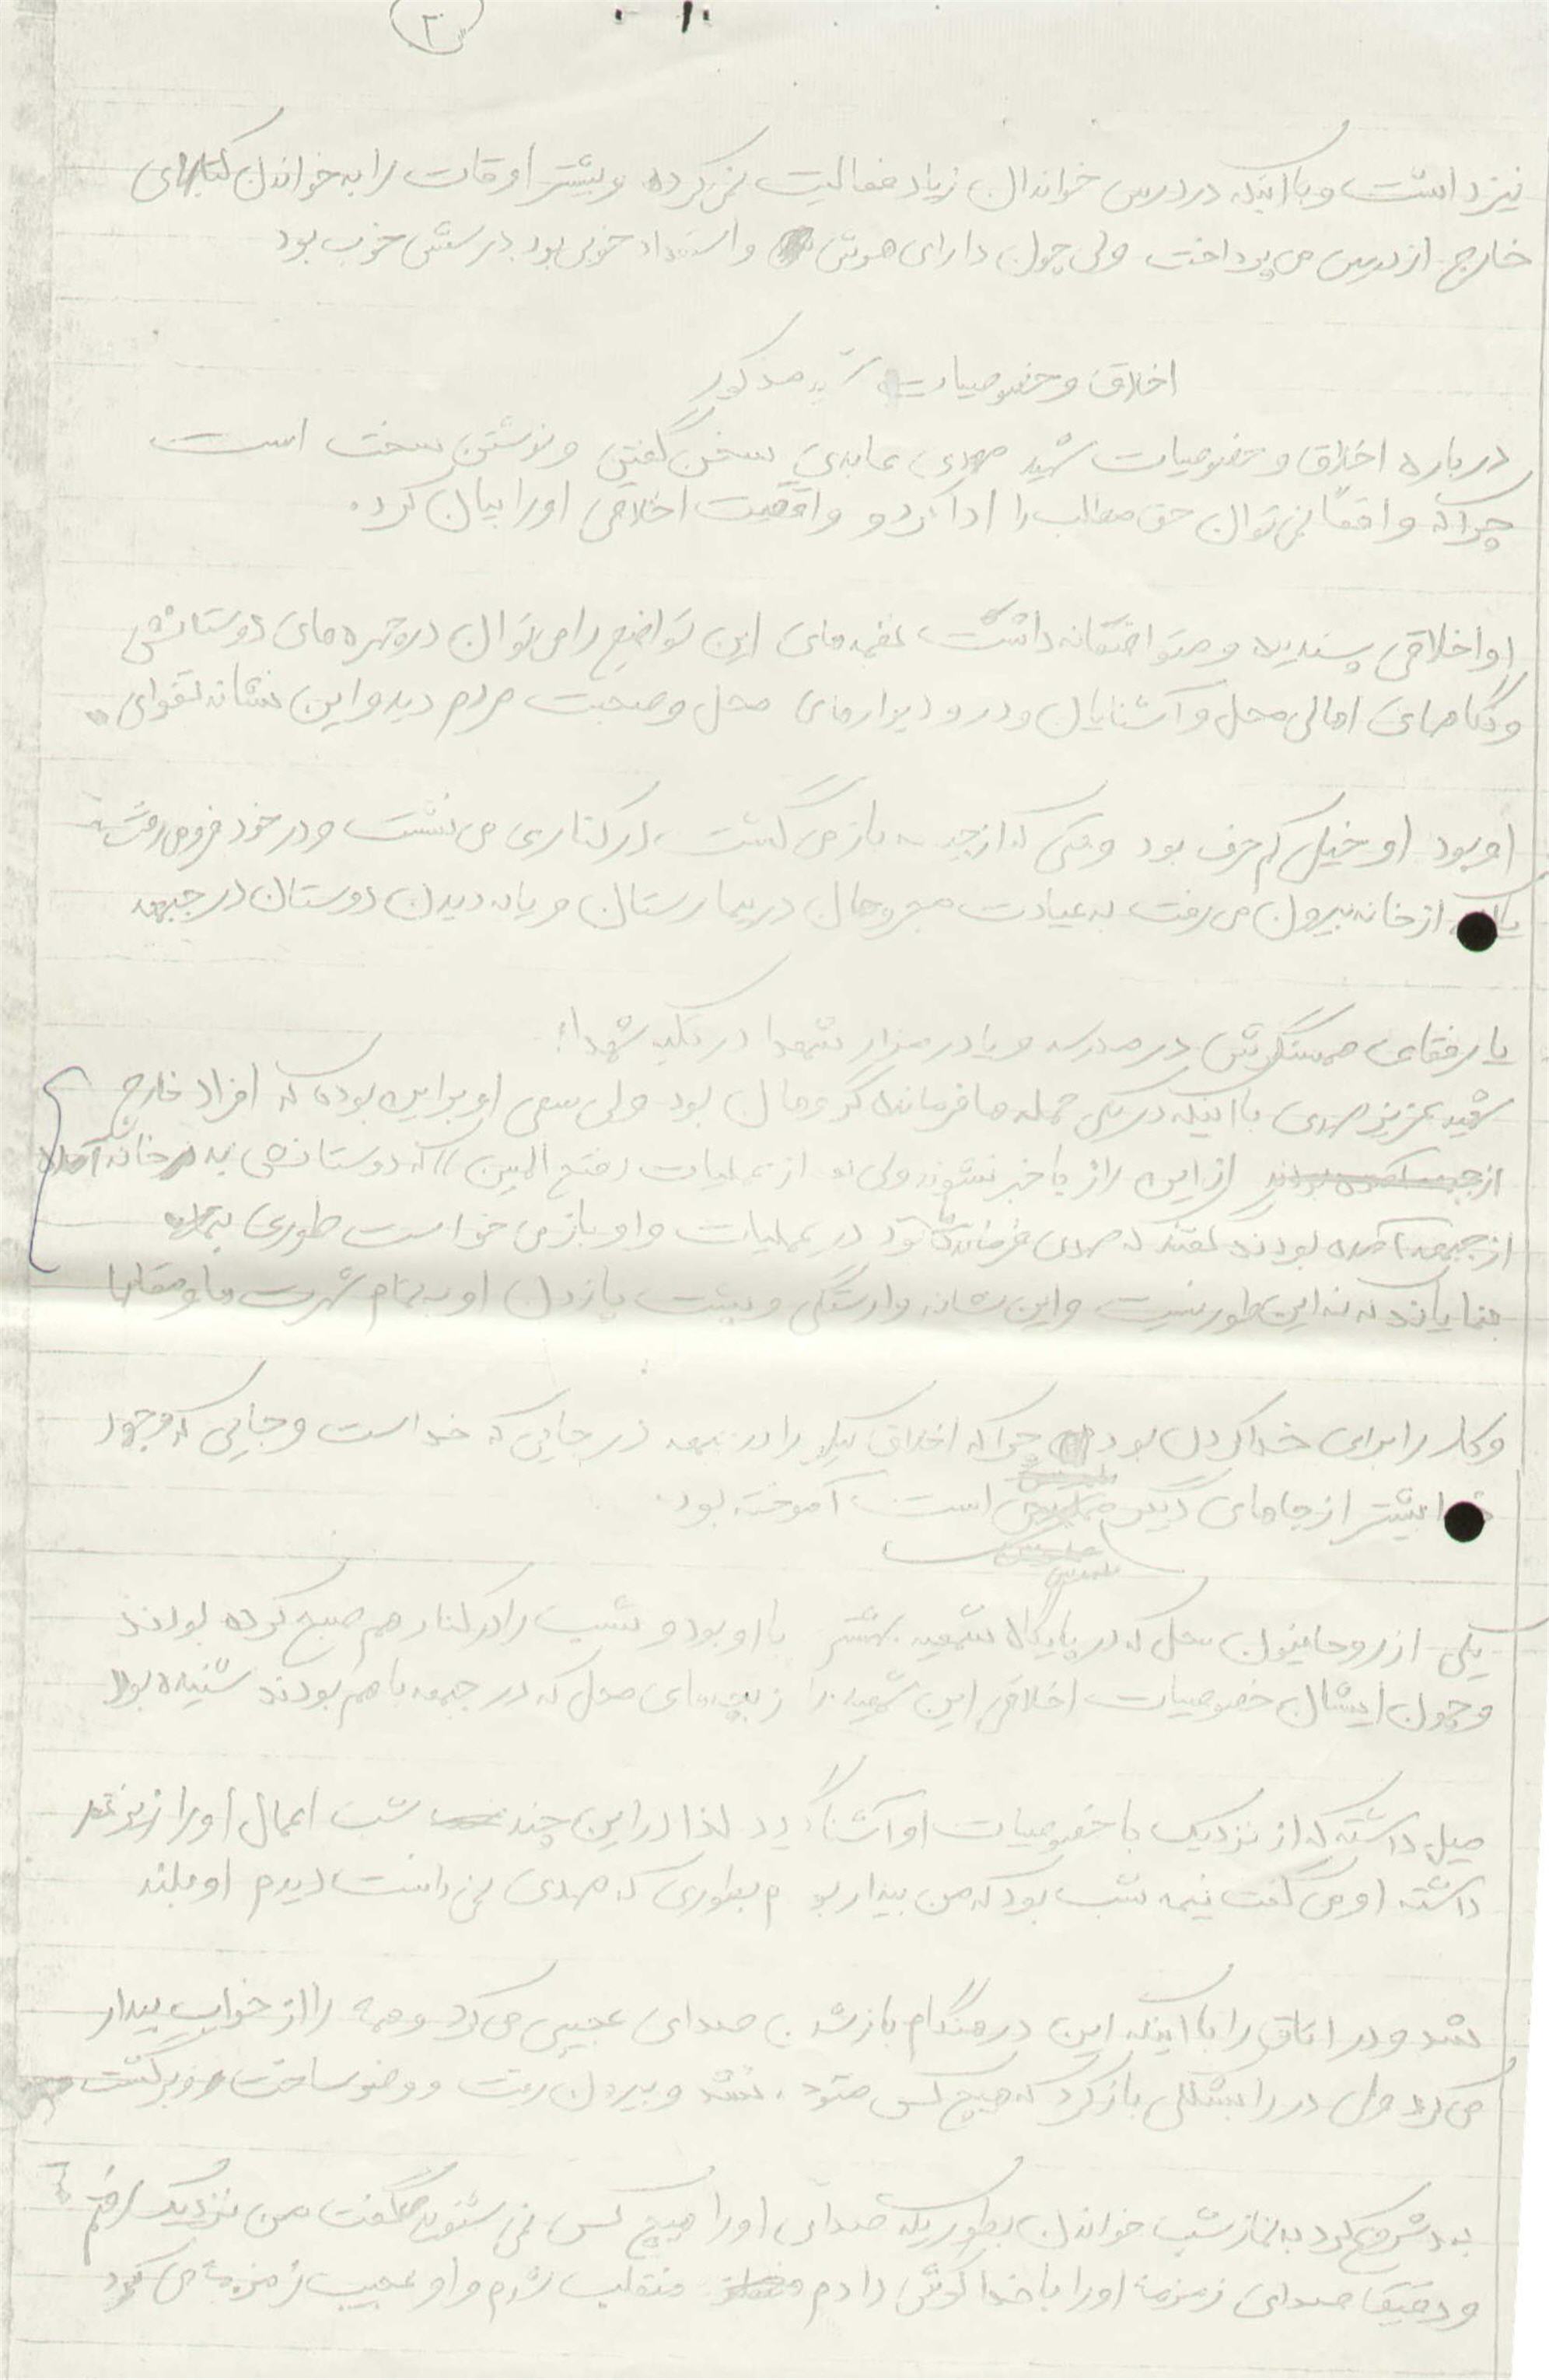 ۲
نیز داشت و با اینکه در درس خواندن زیاد فعالیت نمی‌کرده و بیشتر اوقات را به خواندن کتابهای
خارج از درس می پرداخت ولی چون دارای هوش و استعداد خوبی بود درسش خوب بود
اخلاق و خصوصیات شهید مذکور
درباره اخلاق و خصوصیات شهید مهدی عابدی سخن گفتن و نوشتن سخت است
چرا که واقعاً نمی توان حق مطلب را ادا کرد و واقعیت اخلاقی او را بیان کرد.
او اخلاقی پسندیده و متواضعانه داشت این تواضع را می توان در چهره های دوستانش
و نگاههای اهالی محل و آشنایان و در و دیوارهای محل و صحبت مردم دید و این نشانه تقوای
او بود او خیلی کم حرف بود وقتی که از جبهه باز می گشت در کناری می نشست و در خود فرو می رفت
از خانه بیرون می رفت به عیادت مجروحان در بیمارستان و یا به دیدن دوستان در جبهه
یا رفقای همسنگرش در مدرسه و یا در مزار شهدا در تکیه شهدا
شهید عزیز مهدی با اینکه در یکی حمله ها فرمانده گروهان بود ولی سعی او بر این بود که افراد خارج
از جبهه از این راز با خبر نشوند ولی از عملیات فتح المبین که دوستانش به در خانه آمدند
از جبهه آمده بودند گفتند که مهدی فرمانده بود در عملیات و او باز می خواست طوری
بنمایاند که نه این طور نیست و این نشانه وارستگی و پشت پا زدن او به تمام شهرت ها و مقامها
و کار را برای خدا کردن بود چرا که اخلاق نیکو را در جبهه در جایی که خدا است و جایی که وجود
خدا بیشتر از جاهای دیگر است آموخته بود.
یکی از روحانیون محل که در پایگاه شهید بهشتی با او بود و شب را در کنار هم صبح کرده بودند
و چون ایشان خصوصیات اخلاقی این شهید را از بچه های محل که در جبهه با هم بودند شنیده بود
میل داشته که از نزدیک با خصوصیات او آشنا گردد لذا در این چند شب اعمال او را زیر نظر
داشته او می گفت نیمه شب بود که من بیدار بودم بطوری که مهدی نمی دانست دیدم او بلند
شد و در اتاق را با اینکه این در هنگام باز شدن صدای عجیبی می کرد و همه را از خواب بیدار
می کرد ولی در را بشکلی باز کرد که هیچ کس متوجه نشد و بیرون رفت و وضو ساخت و برگشت
شروع کرد به نماز شب خواندن بطوریکه صدای او را هیچ کس نمی شنود میگفت من نزدیک رفتم
و دقیقا صدای زمزمه او را با خدا گوش دادم منقلب شدم و او عجیب زمزمه می کرد